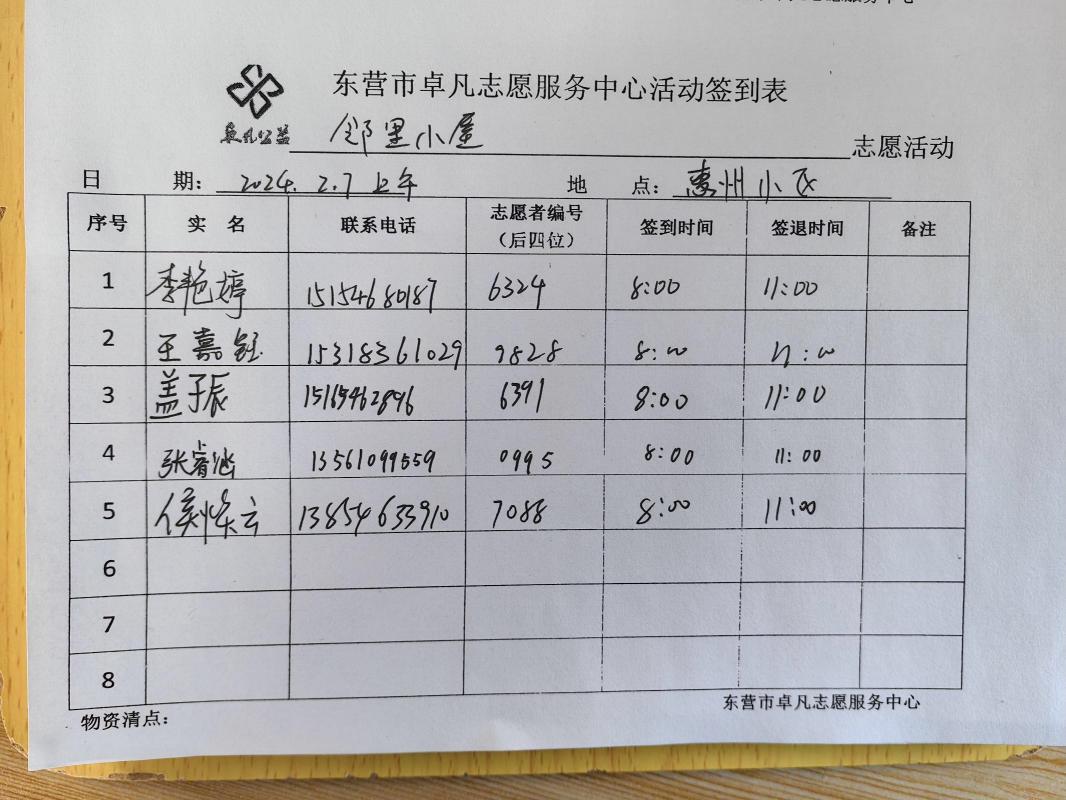 东营市卓凡志愿服务中心活动签到表
卓凡公益 邻里小屋 志愿活动
日 期: 2024. 2.7 上午 地 点: 惠州小区
序号 实 名 联系电话 志愿者编号(后四位) 签到时间 签退时间 备注
1 李艳婷 15154680187 6324 8:00 11:00
2 王嘉钰 15318361029 9828 8:00 11:00
3 盖子辰 15165462896 6391 8:00 11:00
4 张睿涵 13561099559 0995 8:00 11:00
5 侯 云 13854633910 7088 8:00 11:00
6
7
8
物资清点: 东营市卓凡志愿服务中心